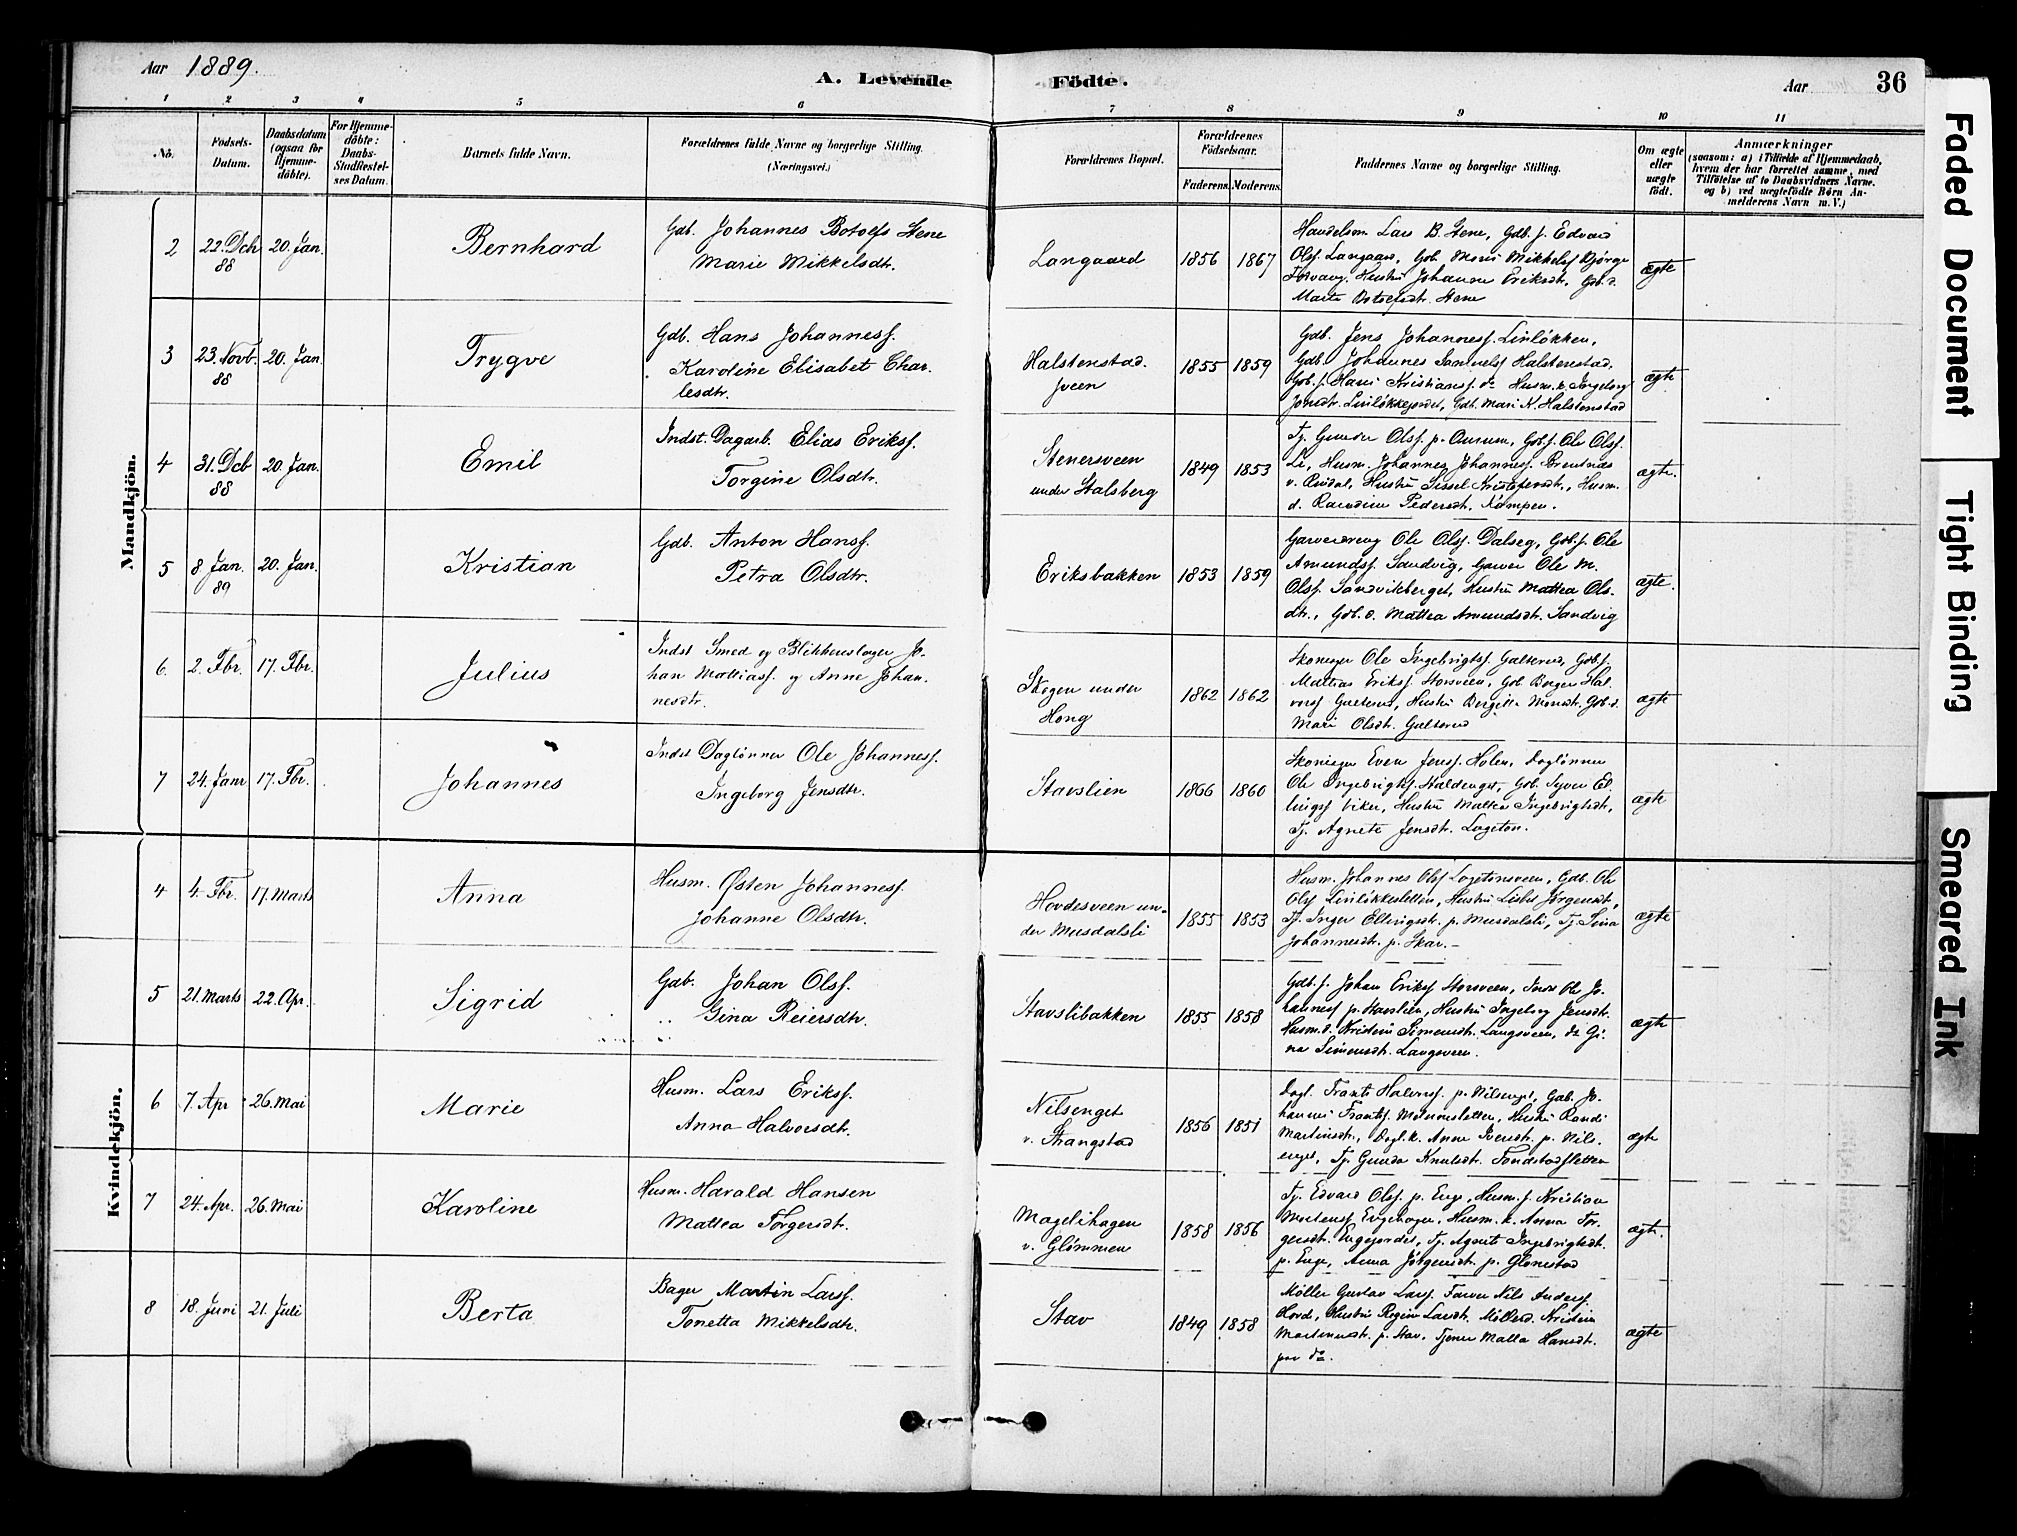 Aar 1889.
A. Levende Födte.
Aar
36
1 2 3 4 5 6 7 8 9 10 11
No.
Födsels-Datum.
Daabsdatum (ogsaa for Hjemme-döbte).
For Hjemme-döbte: Daabs-Stadfæstel-ses Datum.
Barnets fulde Navn.
Forældrenes fulde Navne og borgerlige Stilling. (Næringsvei.)
Forældrenes Bopæl.
Forældrenes Födselsaar.
Faderens. Moderens.
Faddernes Navne og borgerlige Stilling.
Om ægte eller uægte födt.
Anmærkninger
(saasom: a) i Tilfælde af Hjemmedaab,
hvem der har forrettet samme, med
Tilföielse af to Daabsvidners Navne.
og b) ved uægtefödte Börn An-
melderens Navn m. V.)
Mandkjön.
2 22. Dcb 88 20. Jan. Bernhard
Gdb. Johannes Botolfs Stene
Marie Mikkelsdtr.
Langaard 1856 1867
Handelsm Lars B. Stene, Gdb. s. Edvard
Ols. Langaard, Gdb. Mikkels Bjørge
Hustru Johanne Eriksdt. Gdb. d.
Marte Botolfsdt. Stene
ægte
3 23. Novb. 88 20. Jan Trygve
Gdb. Hans Johanness.
Karoline Elisabet Char-
lesdtr.
Halstenstad-
sveen 1855 1859
Gdb. Jens Johanness. Linløkken,
Gdb. Johannes Samuels Halstenstad,
Gdb. s. Hans Kristianss. do Husm. k. Ingeborg
Jonsdtr. Linløkkejordet, Gdb. Mari N. Halstenstad
ægte
4 31. Dcb 88 20. Jan. Emil
Indst. Dagarb. Elias Erikss.
Torgine Olsdtr.
Stenersveen
under Stalsberg 1849 1853
Tj. Olss. p. Aurum, Gdb. s. Ole Olss.
Li, Husm. Johannes Johanness.
Hustru Sissel Kristofersdt., Husm.
d. Pedersdt. Kampen.
ægte.
5 8 Jan. 89 20. Jan. Kristian
Gdb. Anton Hanss.
Petra Olsdtr.
Eriksbakken 1853 1859
Ole Olss. Dalseg, Gdb. s. Ole
Amundss. Sandvig, Garver Ole M.
Olss. Sandvikberget, Hustru Mattea Ols-
dtr., Gdb. d. Mattea Amundsdt. Sandvig
ægte.
6. 2. Fbr. 17. Fbr. Julius
Indst Smed og Blikkenslager Jo-
han Mattiass. og Anne Johan-
nesdtr.
Skogen under
Hong 1862 1862
Skomager Ole Ingebrigtss. Galterud, Gdb. s.
Mattias Erikss. Storsveen, Gdb. Borger Hal-
vorss Galterud, Hustru Bergitte Monsdt. Gdb. d.
Mari Olsdtr. Galterud
ægte
7 24. Janr 17. Fbr. Johannes
Indst Daglønner Ole Johanness.
Ingeborg Jensdtr.
Stavslien 1866 1860
Skomager Even Jenss. Holen, Daglønner
Ole Ingebrigtss. Gdb. Syver El-
lingss Viker, Hustru Mattea Ingebrigtsdt.,
Tj. Agnete Jensdt. Lageton.
ægte
Kvindekjön.
4 4. Fbr. 17. Marts Anna
Husm. Østen Johanness.
Johanne Olsdtr.
Hovdesveen un-
der Musdalsli 1855 1853
Husm. Johannes Olss Gdb. Ole
Olss Linløkkesletten, Hustru Lisbet Jørgensdt.,
Tj. Inger Ellingsdt. p. Musdalsli, Tj. Sina
Johannesdt. p. Skar. –
ægte
5 21. Marts 22. Apr. Sigrid
Gdb. Johan Olss.
Gina Reiersdtr.
Stavslibakken 1855 1858
Gdb. s. Johan Erikss Storsveen, Ole Jo-
hanness p. Stavslien, Hustru Ingeborg Jensdt.
Husm. d. Kristine Simensdt. Langsveen, do Gi-
na Simensdt. Langsveen.
ægte
6 7. Apr 26. Mai Marie
Husm. Lars Erikss.
Anna Halvorsdtr.
Nilsenget
v. Frangstad 1856 1851
Dagl. Frants Halvorss. p. Nilsenget, Gdb. Jo-
hannes Frantss. Hustru Randi
Martinsdt., Dagl. k. Anne Iversdt. p. Nils-
enget, Tj. Gunda Knutsdt.
ægte
7 24. Apr. 26. Mai Karoline
Husm. Harald Hansen
Mattea Torgersdt.
Magelihagen
v. Glømmen 1858 1856
Tj. Edvard Olss. p. Enge, Husm. s. Kristian
Mortenss Engehagen, Husm. k. Anna Tor-
gersdt. Engejordet, Tj. Agnete Ingebrigtsdt.
p. Enge, Anna Jørgensdt. p. Glønestad
ægte.
8 18. Juni 21. Juli Berta
Bager Martin Larss.
Tonetta Mikkelsdtr.
Stav 1849 1858
Møller Gustav Larss. Farver Nils Anderss.
Hovde, Hustru Regine Larsdt. Kristine
Martinusdt. p. Stav, Tjener Matta Hansdt.
paa do.
ægte
Faded Document
Tight Binding
Smeared Ink